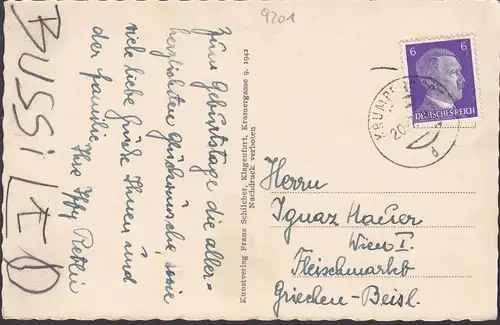 9201
Zum Geburtstage die aller-
herzlichsten Glückwünsche, sowie
viele liebe Grüße Ihnen und
der Familie
Ihre
BUSSI LEO
Kunstverlag Franz Schilcher, Klagenfurt, Kramergasse 9. 1942
Nachdruck verboten
6 6
DEUTSCHES REICH
KRUMP
20
d
Herrn
Ignaz Hauer
Wien I.
Fleischmarkt
Griechen-Beisl.